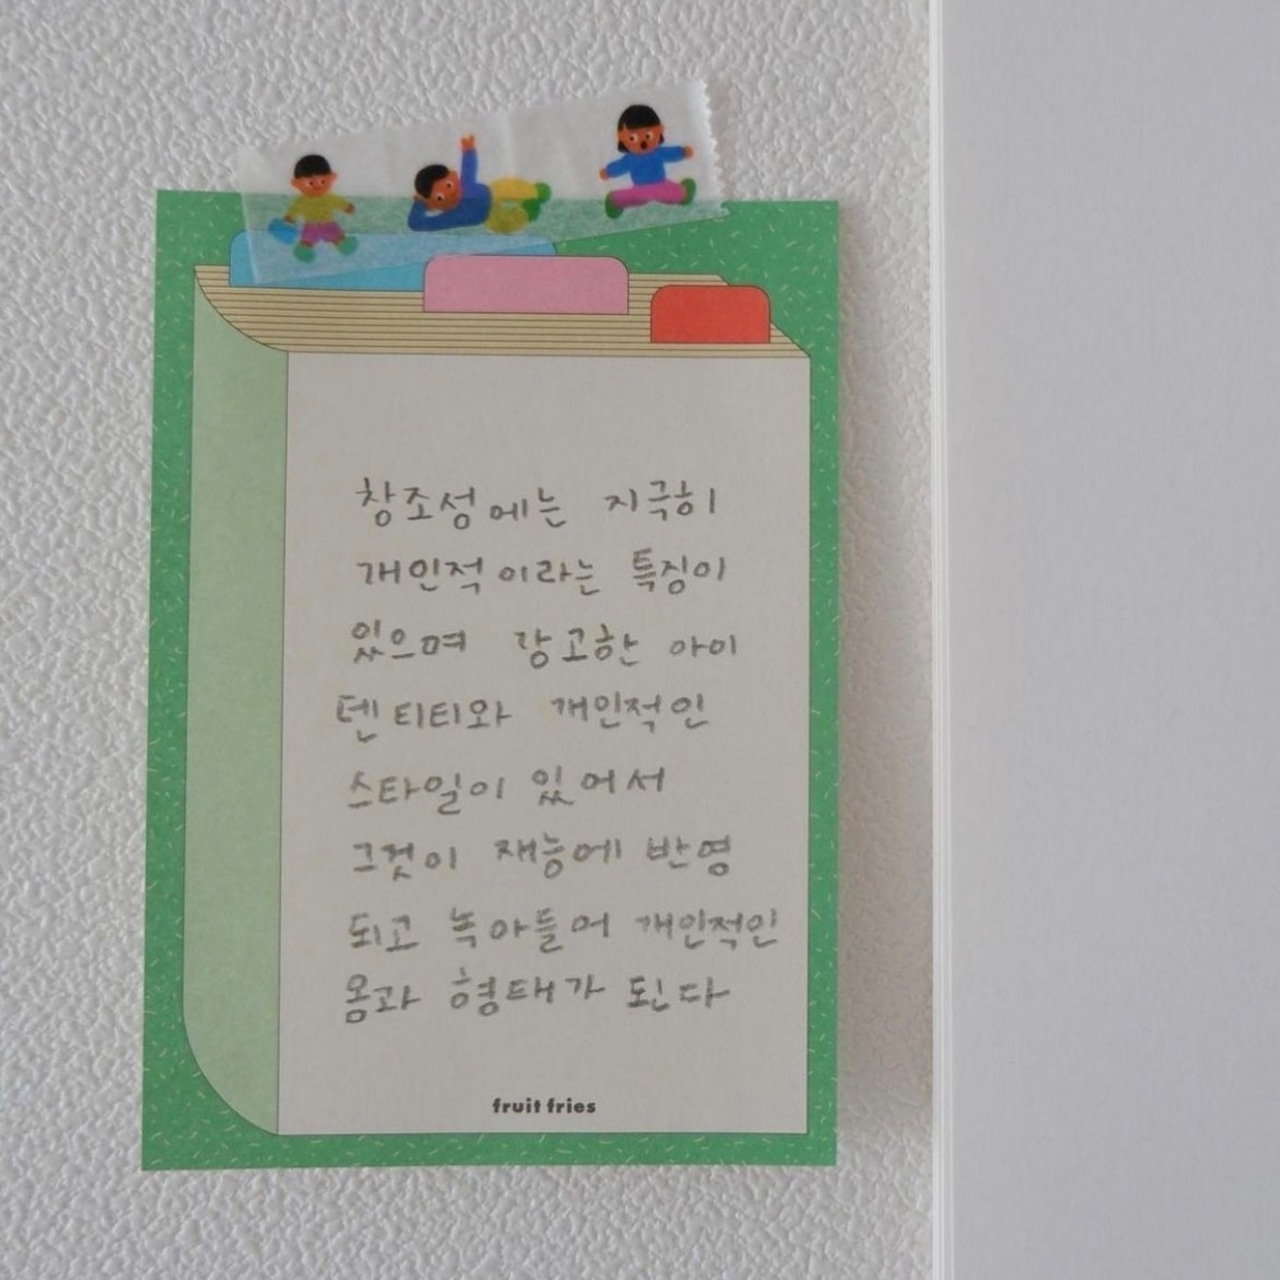 창조성에는 지극히
개인적이라는 특징이
있으며 강고한 아이
덴티티와 개인적인
스타일이 있어서
그것이 재능에 반영
되고 녹아들어 개인적인
몸과 형태가 된다
fruit fries